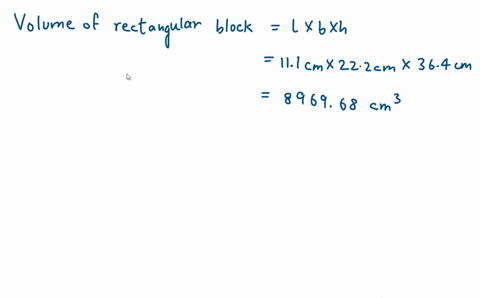 Volume of rectangular block = l × b × h
= 11.1 cm × 22.2 cm × 36.4 cm
= 8969.68 cm³